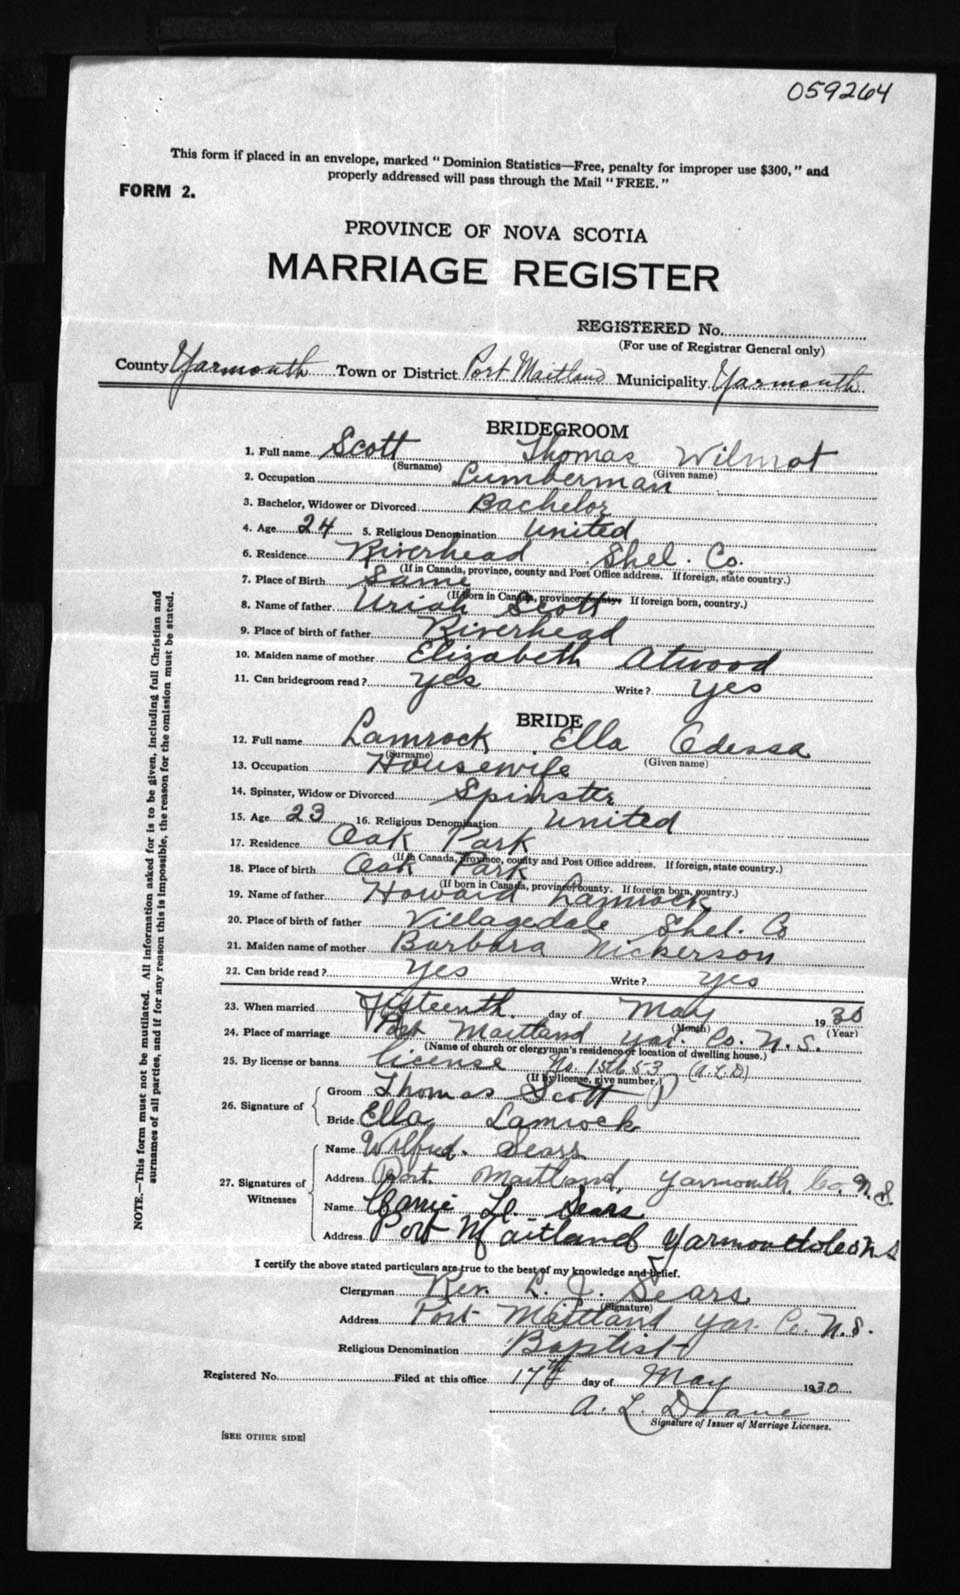 059264
This form if placed in an envelope, marked "Dominion Statistics—Free, penalty for improper use $300," and
properly addressed will pass through the Mail "FREE."
FORM 2.
PROVINCE OF NOVA SCOTIA
MARRIAGE REGISTER
REGISTERED No.
(For use of Registrar General only)
County Yarmouth Town or District Port Maitland Municipality Yarmouth
BRIDEGROOM
1. Full name Scott Thomas Wilmot
(Surname) (Given name)
2. Occupation Lumberman
3. Bachelor, Widower or Divorced Bachelor
4. Age 24 5. Religious Denomination United
6. Residence Riverhead Shel. Co.
(If in Canada, province, county and Post Office address. If foreign, state country.)
7. Place of Birth Same
(If born in Canada, province, county. If foreign born, country.)
8. Name of father Uriah Scott
9. Place of birth of father Riverhead
10. Maiden name of mother Elizabeth Atwood
11. Can bridegroom read? yes Write? yes
BRIDE
12. Full name Lamrock Ella Odessa
(Surname) (Given name)
13. Occupation Housewife
14. Spinster, Widow or Divorced Spinster
15. Age 23 16. Religious Denomination United
17. Residence Oak Park
(If in Canada, province, county and Post Office address. If foreign, state country.)
18. Place of birth Oak Park
(If born in Canada, province, county. If foreign born, country.)
19. Name of father Howard Lamrock
20. Place of birth of father Villagedale Shel. Co
21. Maiden name of mother Barbara Nickerson
22. Can bride read? Yes Write? yes
23. When married fifteenth day of May 1930
(Month) (Year)
24. Place of marriage Port Maitland Yar. Co. N.S.
(Name of church or clergyman's residence or location of dwelling house.)
25. By license or banns license No. 15653 (A.L.D)
(If by license, give number.)
26. Signature of
Groom Thomas Scott
Bride Ella Lamrock
27. Signatures of Witnesses
Name Wilfred Sears
Address Port Maitland, Yarmouth Co. N.S.
Name Sears
Address Port Maitland Yarmouth Co N S
I certify the above stated particulars are true to the best of my knowledge and belief.
Clergyman Rev. L. J. Sears
(Signature)
Address Port Maitland Yar. Co. N.S.
Religious Denomination Baptist
Registered No. Filed at this office 17th day of May 1930
A. L. Doane
Signature of Issuer of Marriage Licenses.
[SEE OTHER SIDE]
NOTE.—This form must not be mutilated. All information asked for is to be given, including full Christian and
surnames of all parties, and if for any reason this is impossible, the reason for the omission must be stated.